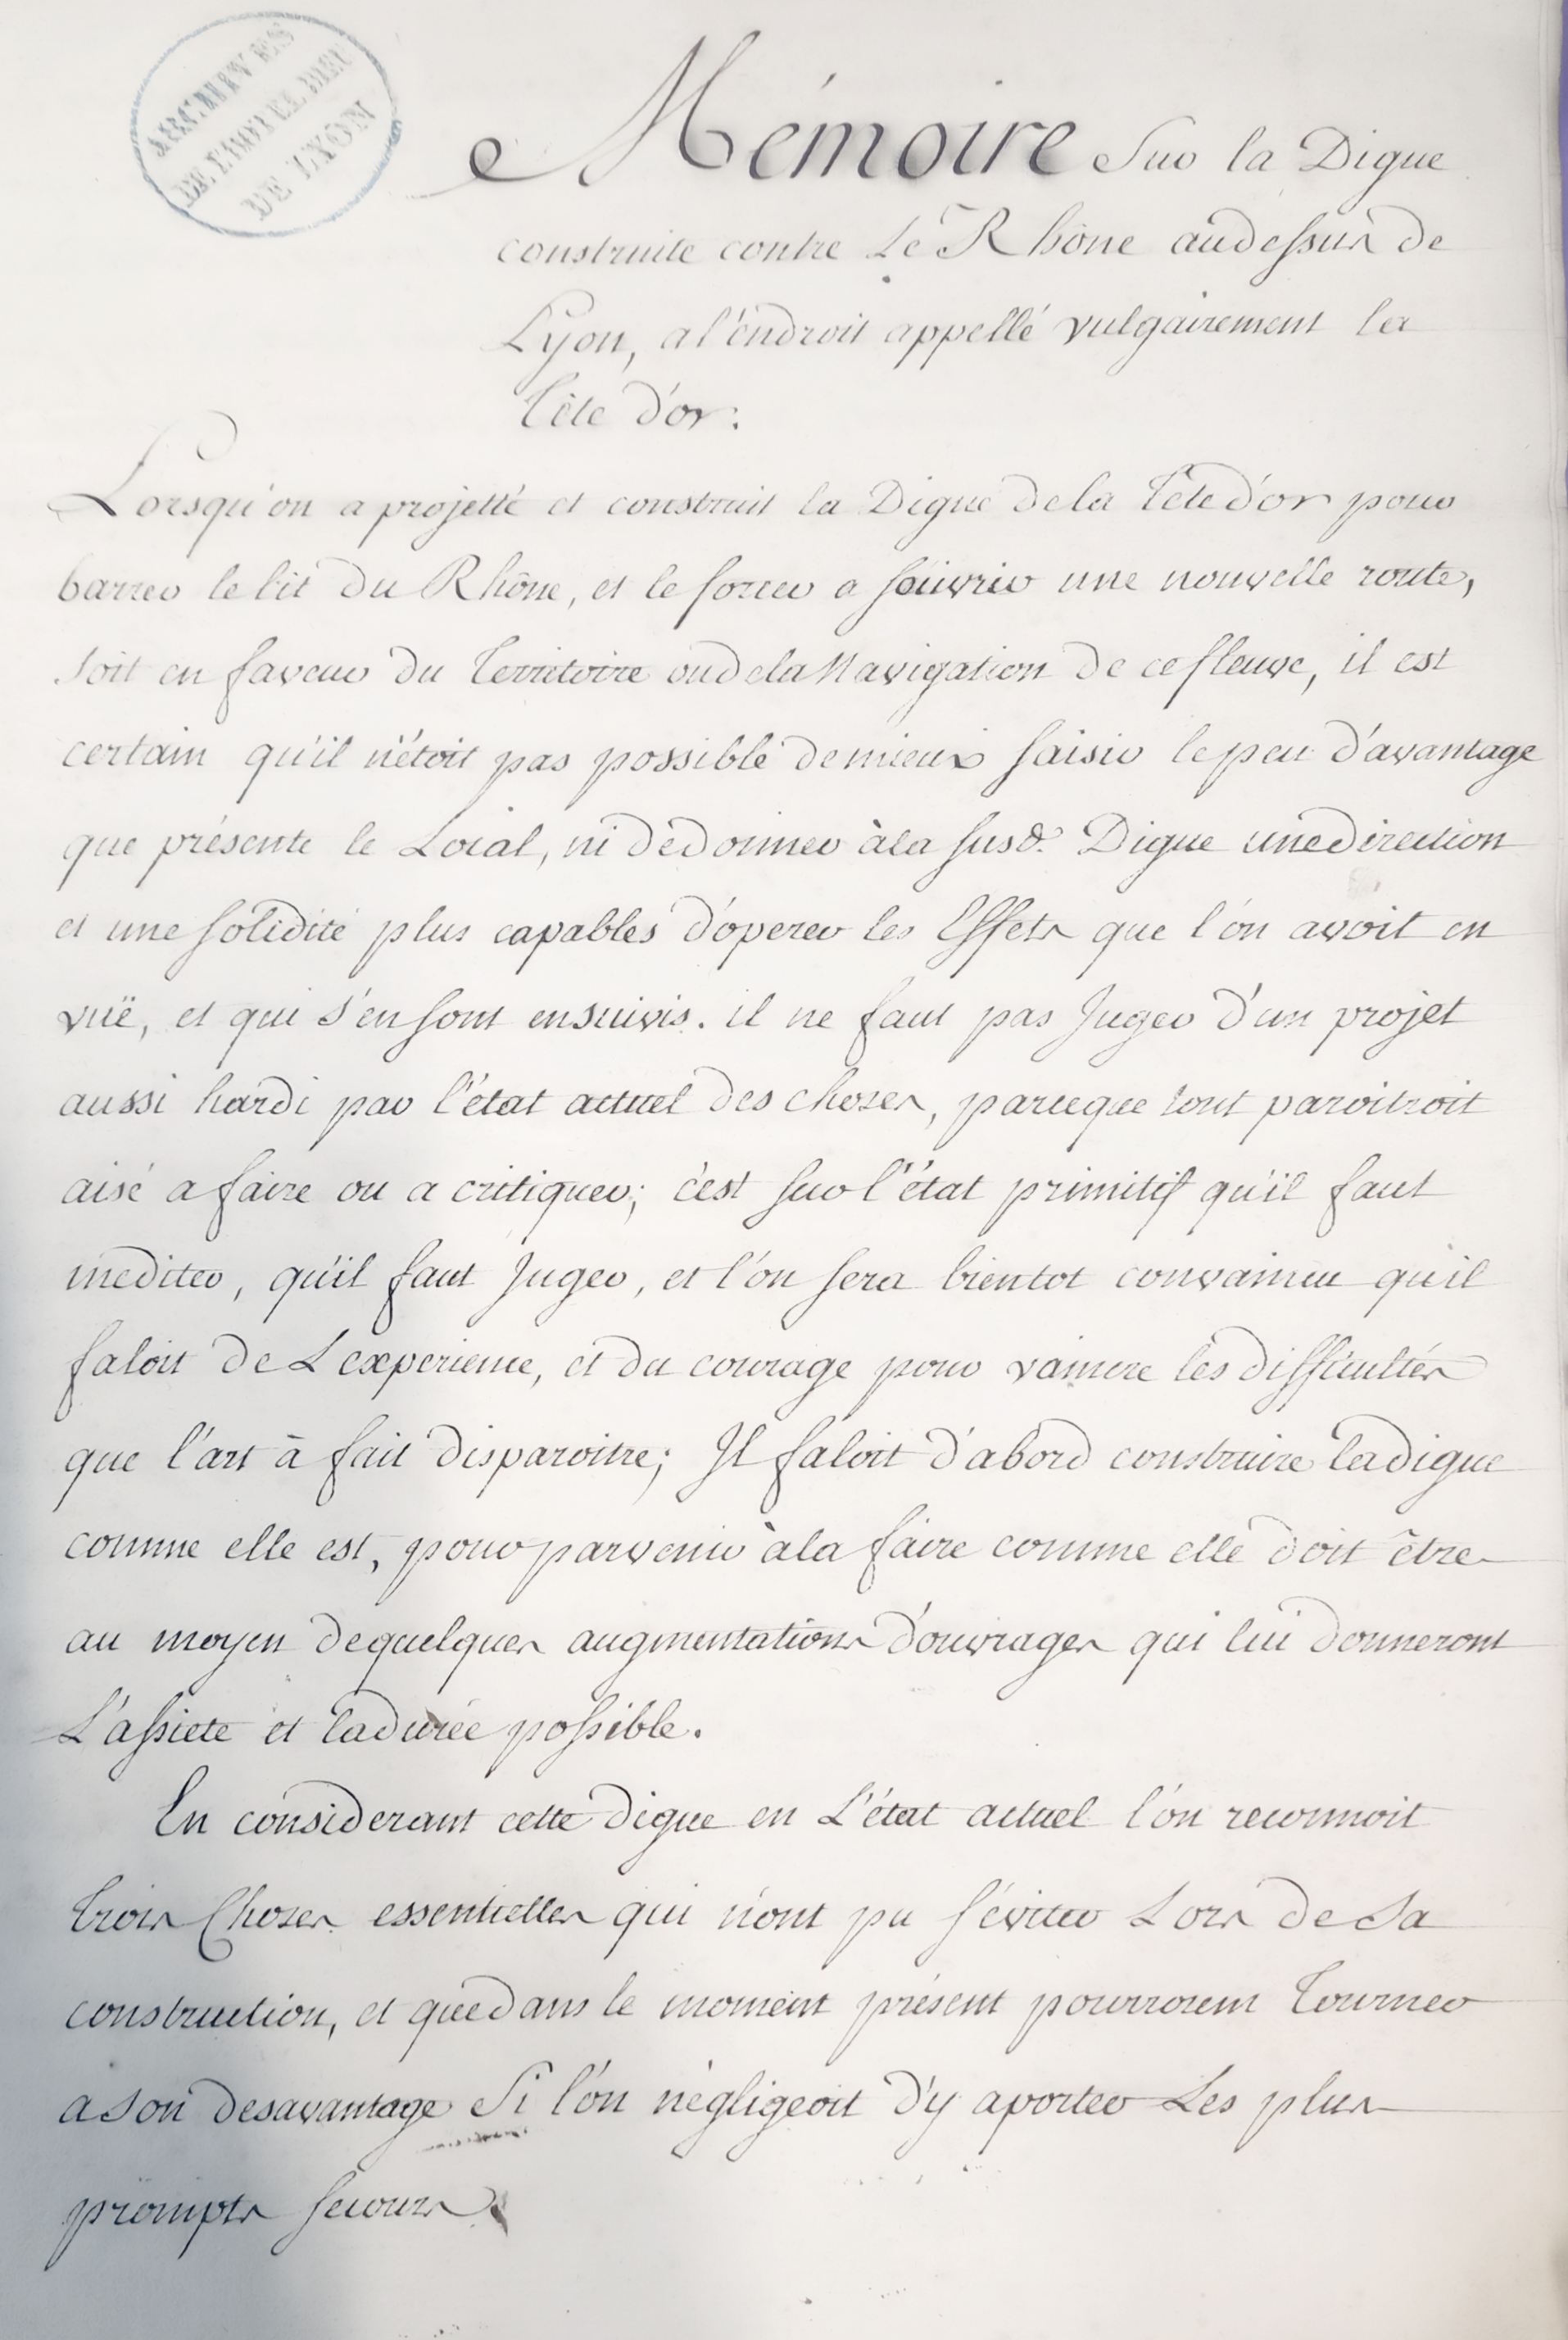 ARCHIVES
DE L'HOTEL DIEU
DE LYON
Mémoire Sur la Digue
construite contre Le Rhône audessus de
Lyon, a l'éndroit appellé vulgairement la
Tête d'or:
Lorsqu'on a projetté et construit la Digue de la Tête d'or pour
barrer le lit du Rhône, et le forcer a s'ouvrir une nouvelle route,
soit en faveur du Territoire ou de la Navigation de ce fleuve, il est
certain qu'il n'étoit pas possible de mieux saisir le peu d'avantage
que présente le Local, ni de donner à la susd. Digue une direction
et une solidité plus capables d'operer les Effets que l'on avoit en
vuë, et qui s'en sont ensuivis. il ne faut pas Juger d'un projet
aussi hardi par l'état actuel des choses, parceque tout paroitroit
aisé a faire ou a critiquer; c'est sur l'état primitif qu'il faut
mediter, qu'il faut Juger, et l'on sera bientot convaincu qu'il
faloit de L'experience, et du courage pour vaincre les difficultés
que l'art à fait disparoitre; Il faloit d'abord construire la digue
comme elle est, pour parvenir à la faire comme elle doit être
au moyen de quelques augmentations d'ouvrages qui lui donneront
L'assiete et la durée possible.
En considerant cette digue en L'état actuel l'on reconnoit
trois Choses essentielles qui n'ont pu s'éviter Lors de Sa
construction, et que dans le moment présent pourroient Tourner
a Son desavantage Si l'on négligeoit d'y aporter Les plus
prompts secours.